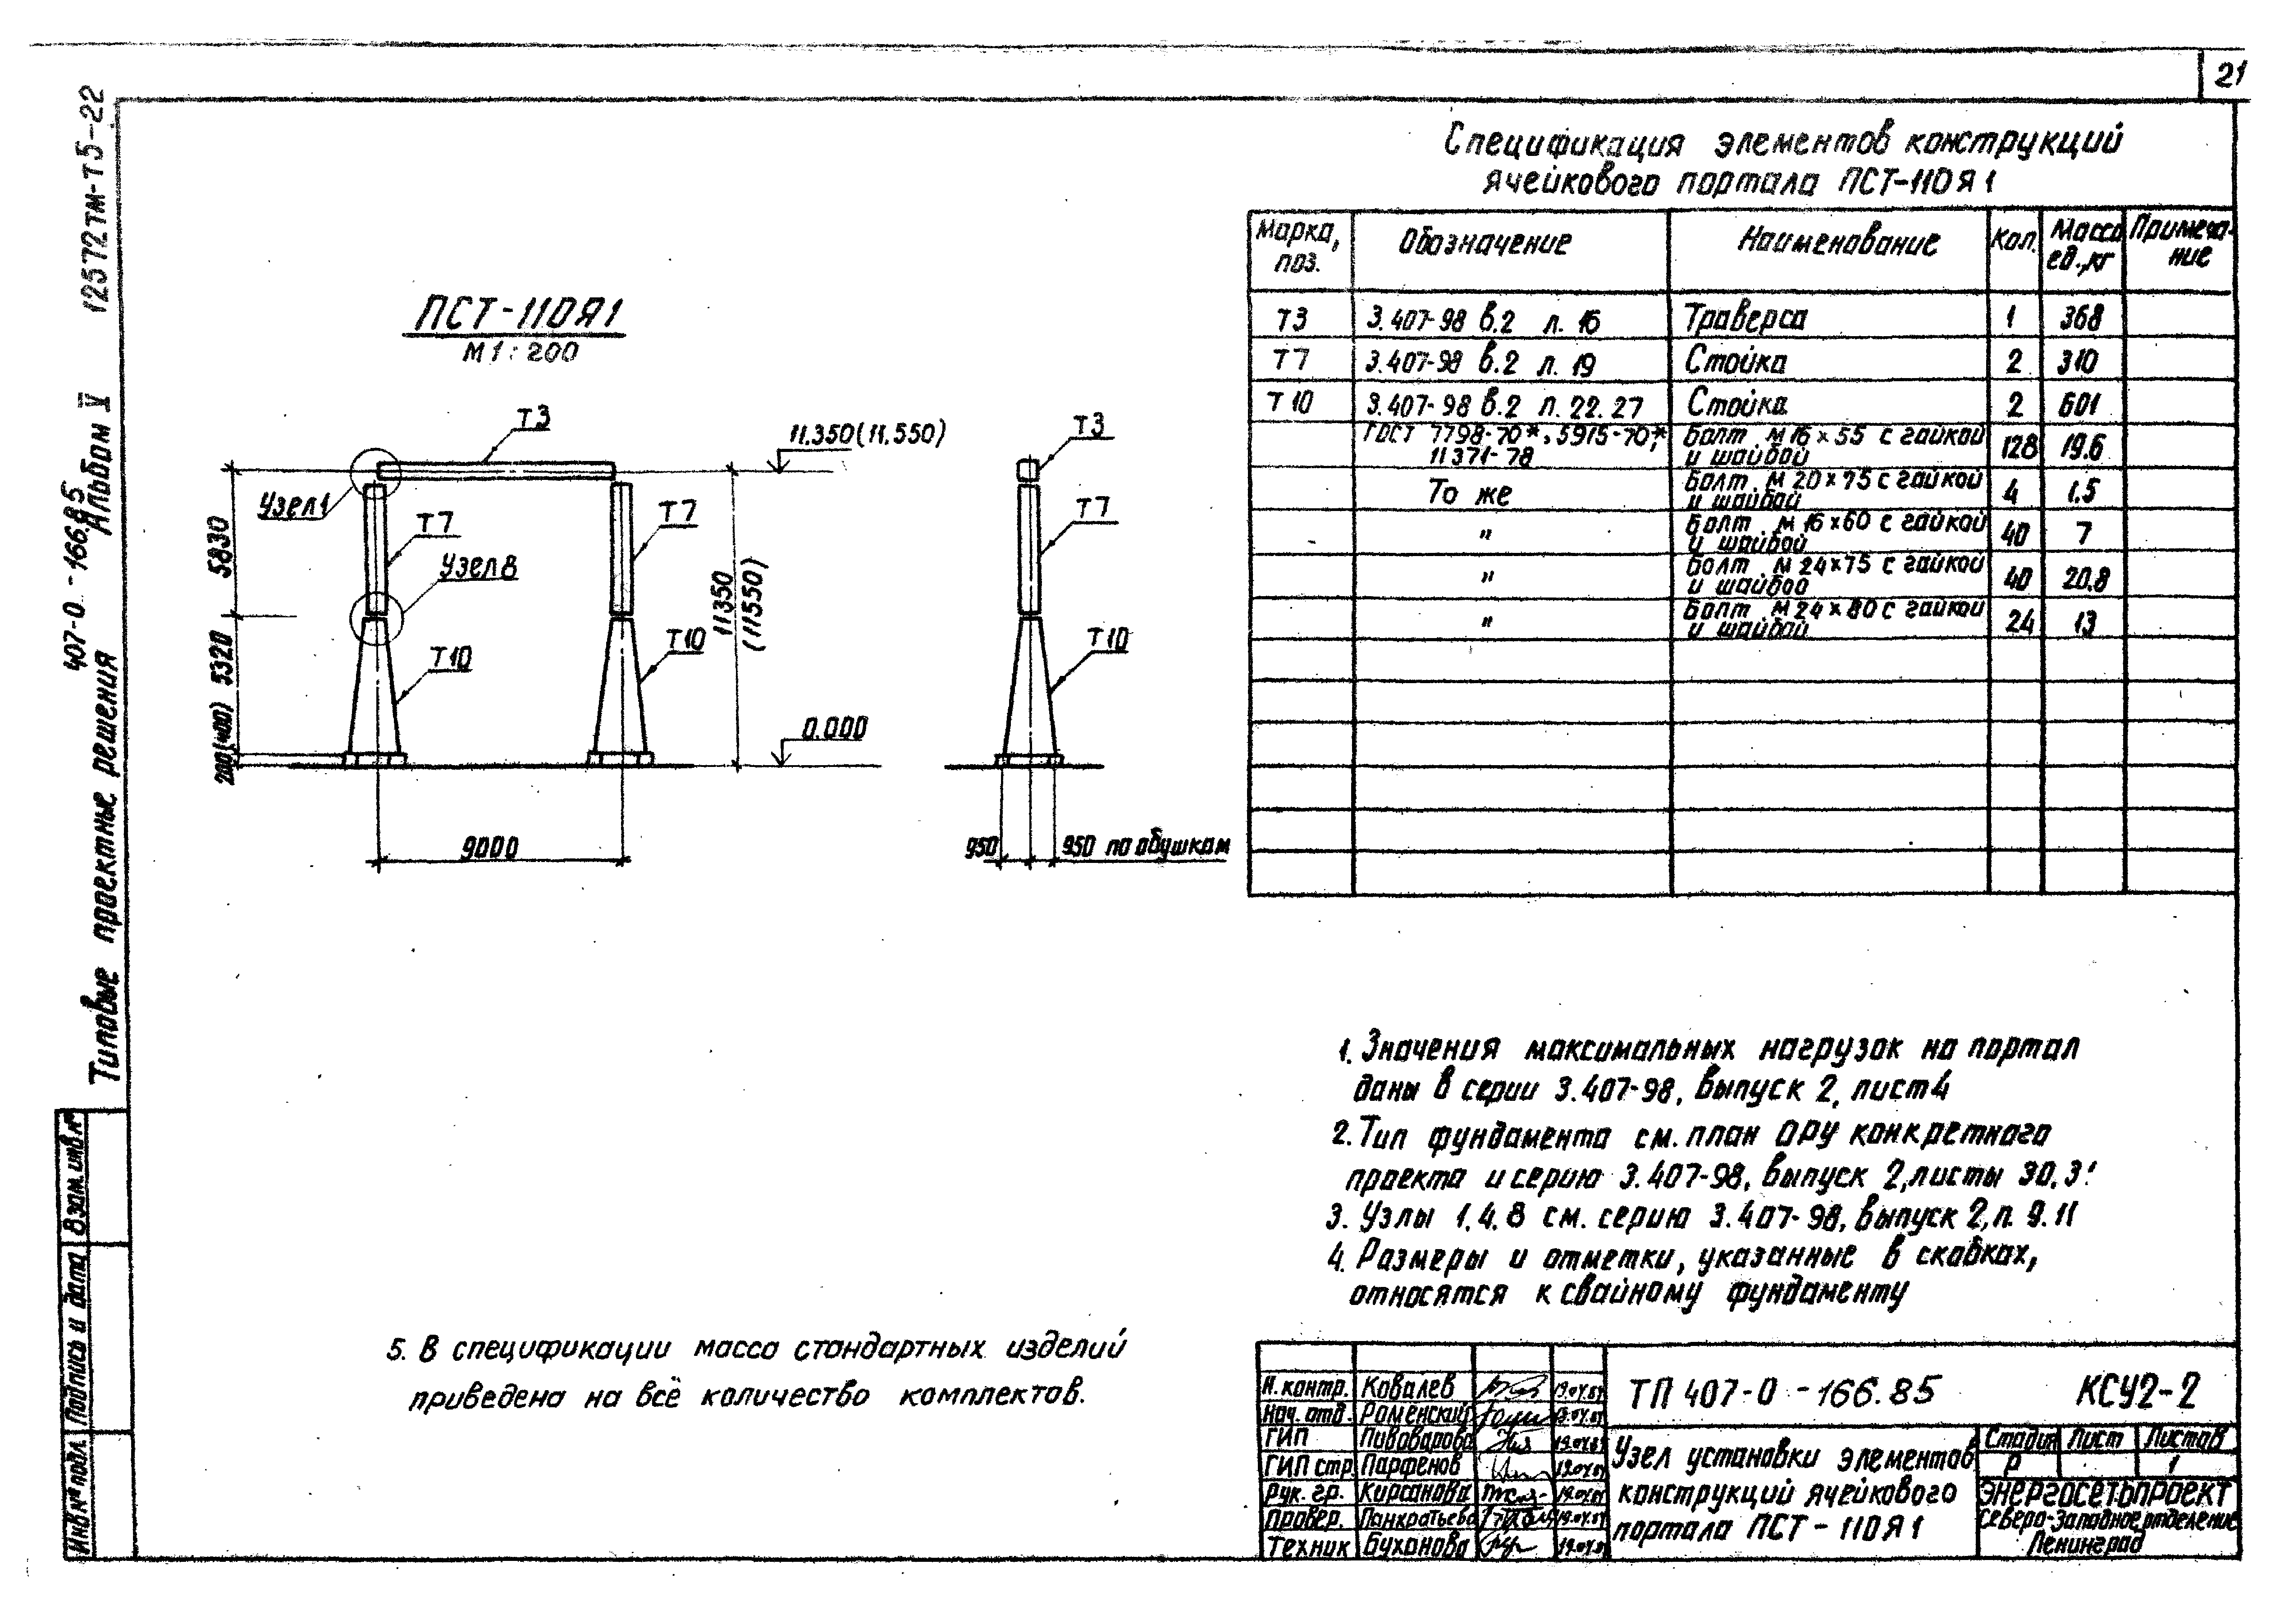 21
12572тм-т5-22
407-0-166.85
Альбом V
Типовые проектные решения
Взам.инв.№
Подпись и дата
Инв.№ подл.
ПСТ-110Я1
М 1:200
Т3
11.350(11.550)
Узел 1
Т7
Т7
Узел 8
Т10
Т10
5830
5320
200(400)
11350
(11550)
0.000
9000
Т3
Т7
Т10
950
950 по обушкам
Спецификация элементов конструкций
ячейкового портала ПСТ-110Я1
Марка, поз. Обозначение Наименование Кол. Масса ед.,кг Примеча-ние
Т3 3.407-98 в.2 л. 16 Траверса 1 368
Т7 3.407-98 в.2 л. 19 Стойка 2 310
Т10 3.407-98 в.2 л. 22. 27 Стойка 2 601
ГОСТ 7798-70*, 5915-70*, 11371-78 Болт М16×55 с гайкой и шайбой 128 19.6
То же Болт М20×75 с гайкой и шайбой 4 1.5
" Болт М16×60 с гайкой и шайбой 40 7
" Болт М24×75 с гайкой и шайбой 40 20.8
" Болт М24×80 с гайкой и шайбой 24 13
1. Значения максимальных нагрузок на портал
даны в серии 3.407-98, выпуск 2, лист 4
2. Тип фундамента см. план ОРУ конкретного
проекта и серию 3.407-98, выпуск 2, листы 30,
3. Узлы 1.4.8 см. серию 3.407-98, выпуск 2, л. 9.11
4. Размеры и отметки, указанные в скобках,
относятся к свайному фундаменту
5. В спецификации масса стандартных изделий
приведена на всё количество комплектов.
Н. контр. Ковалев
Нач. отд. Роменский
ГИП Пивоварова
ГИП стр. Парфенов
Рук. гр. Кирсанова
Провер. Панкратьева
Техник Буханова
ТП 407-0-166.85 КСУ2-2
Узел установки элементов
конструкций ячейкового
портала ПСТ-110Я1
Стадия Лист Листов
Р 1
ЭНЕРГОСЕТЬПРОЕКТ
Северо-Западное отделение
Ленинград